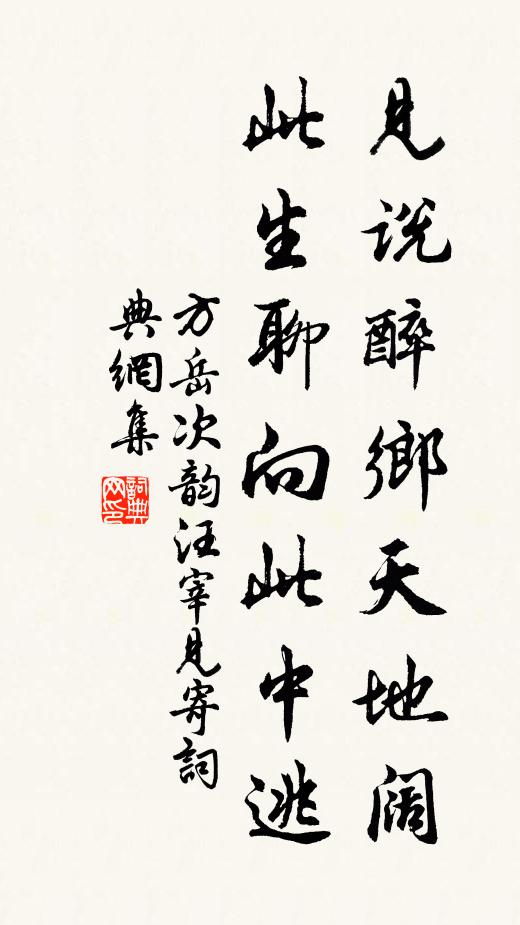 見说醉鄉天地阔
此生聊向此中逃
方岳次韵汪宰見寄詞
典網集
詞典
网印